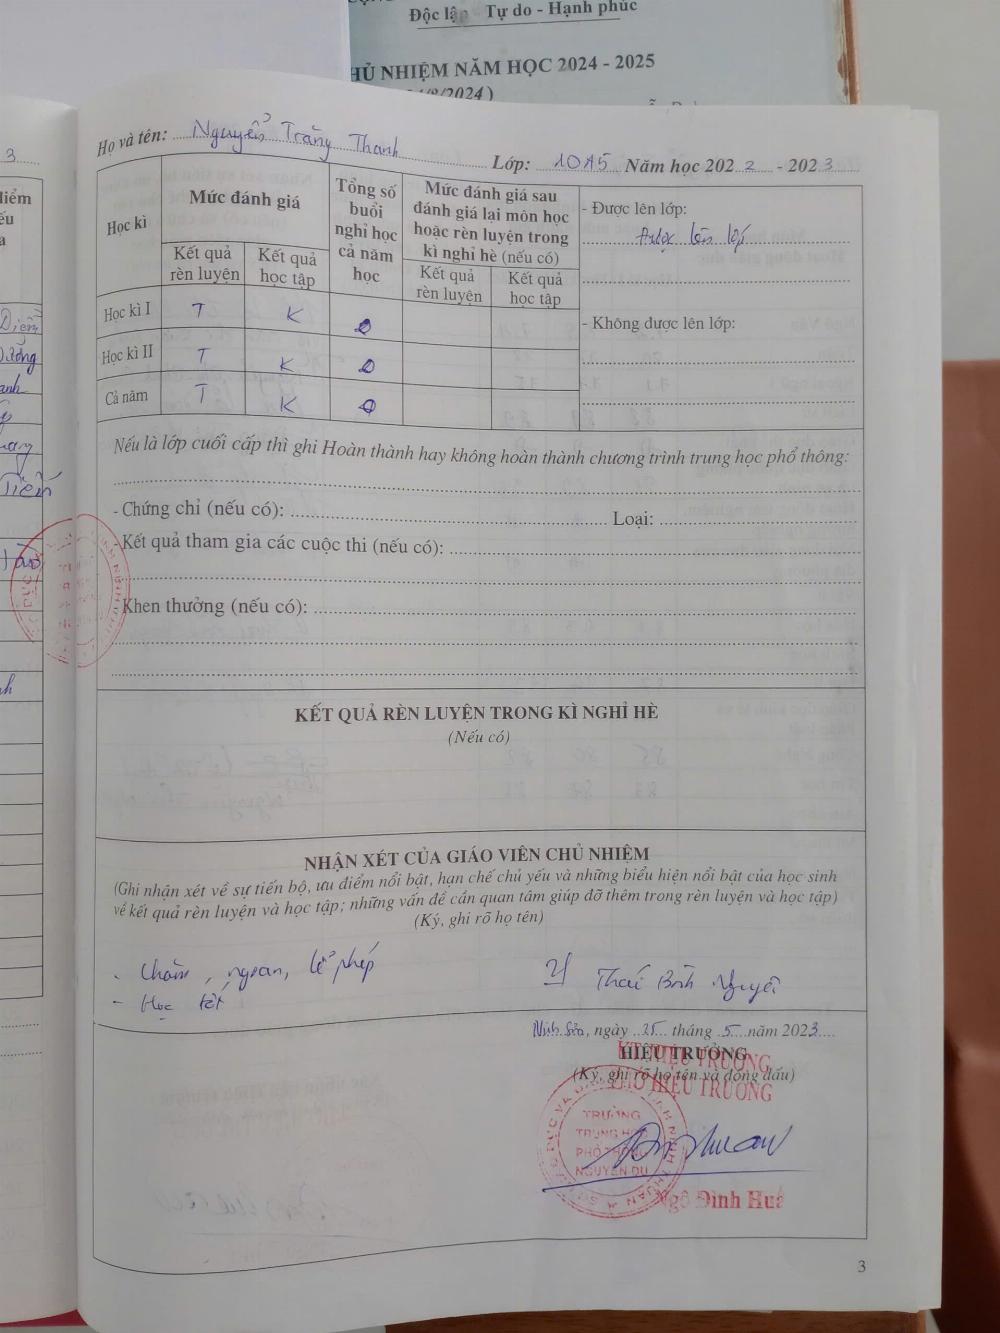 Độc lập Tự do - Hạnh phúc
HỦ NHIỆM NĂM HỌC 2024 - 2025
/8/2024 )
Họ và tên: Nguyễn Trăng Thanh Lớp: 10A5 Năm học 2022 - 2023
Học kì
Mức đánh giá
Kết quả rèn luyện
Kết quả học tập
Tổng số buổi nghỉ học cả năm học
Mức đánh giá sau đánh giá lại môn học hoặc rèn luyện trong kì nghỉ hè (nếu có)
Kết quả rèn luyện
Kết quả học tập
- Được lên lớp:
Được lên lớp
- Không được lên lớp:
Học kì I T K 0
Học kì II T K 0
Cả năm T K 0
Nếu là lớp cuối cấp thì ghi Hoàn thành hay không hoàn thành chương trình trung học phổ thông:
- Chứng chỉ (nếu có): Loại:
- Kết quả tham gia các cuộc thi (nếu có):
- Khen thưởng (nếu có):
KẾT QUẢ RÈN LUYỆN TRONG KÌ NGHỈ HÈ
(Nếu có)
NHẬN XÉT CỦA GIÁO VIÊN CHỦ NHIỆM
(Ghi nhận xét về sự tiến bộ, ưu điểm nổi bật, hạn chế chủ yếu và những biểu hiện nổi bật của học sinh
về kết quả rèn luyện và học tập; những vấn đề cần quan tâm giúp đỡ thêm trong rèn luyện và học tập)
(Ký, ghi rõ họ tên)
- Chăm, ngoan, lễ phép
- Học tốt
Thái Bình Nguyên
Ninh Sơn, ngày 25 tháng 5 năm 2023
HIỆU TRƯỞNG
(Ký, ghi rõ họ tên và đóng dấu)
KT. HIỆU TRƯỞNG
PHÓ HIỆU TRƯỞNG
TRƯỜNG
TRUNG HỌC
PHỔ THÔNG
NGUYỄN DU
Ngô Đình Huâ
3